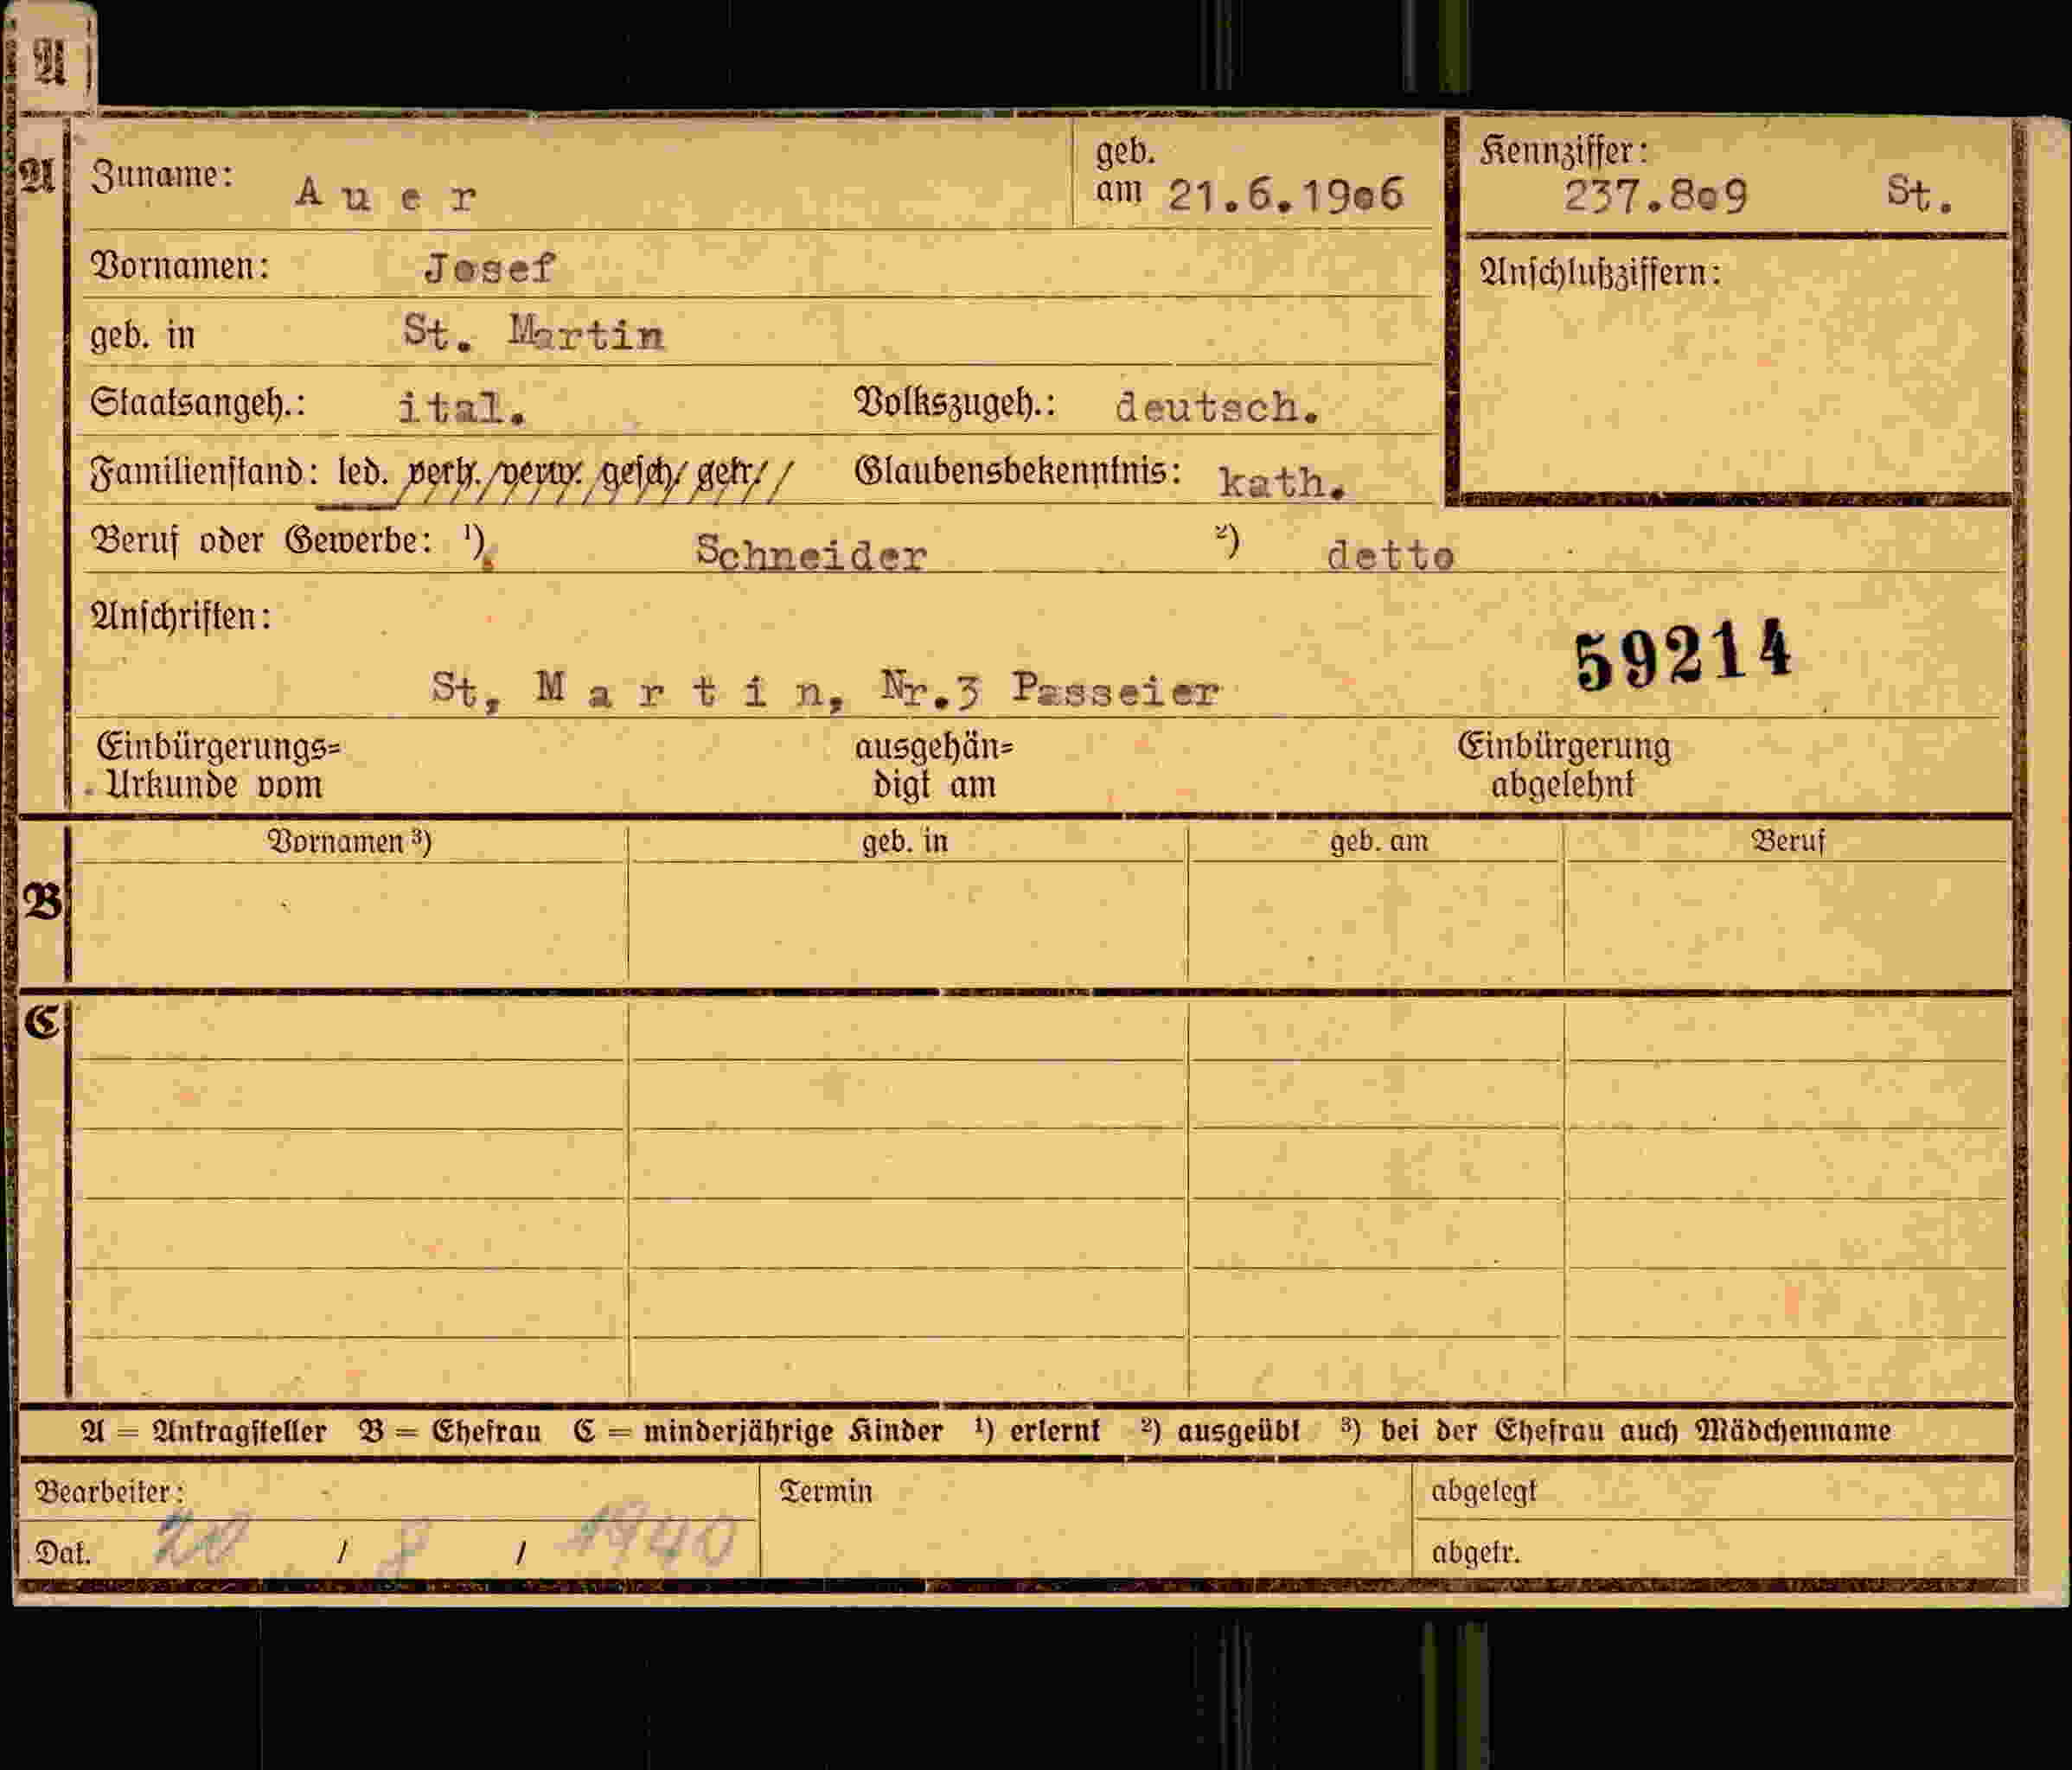 A
A Zuname: Auer geb. am 21.6.1906 Kennziffer: 237.809 St.
Vornamen: Josef Anschlußziffern:
geb. in St. Martin
Staatsangeh.: ital. Volkszugeh.: deutsch.
Familienstand: led. verh. verw. gesch. getr. Glaubensbekenntnis: kath.
Beruf oder Gewerbe: ¹) Schneider ²) detto
Anschriften:
59214
St, Martin, Nr.3 Passeier
Einbürgerungs= ausgehän= Einbürgerung
Urkunde vom digt am abgelehnt
Vornamen ³) geb. in geb. am Beruf
B
C
A = Antragsteller B = Ehefrau C = minderjährige Kinder ¹) erlernt ²) ausgeübt ³) bei der Ehefrau auch Mädchenname
Bearbeiter: Termin abgelegt
Dat. 20 / 8 / 1940 abgetr.